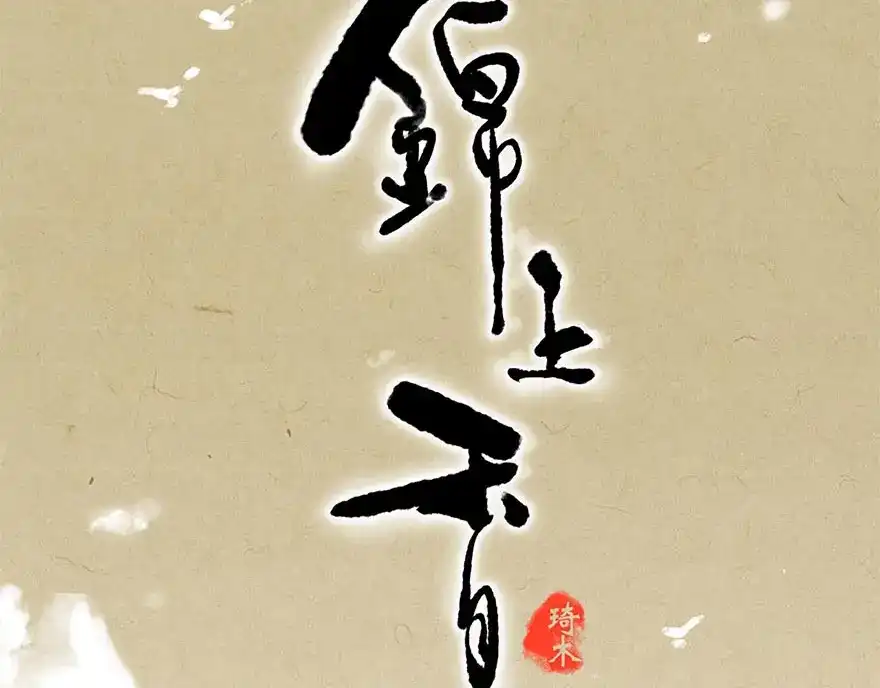 錦上香
琦木